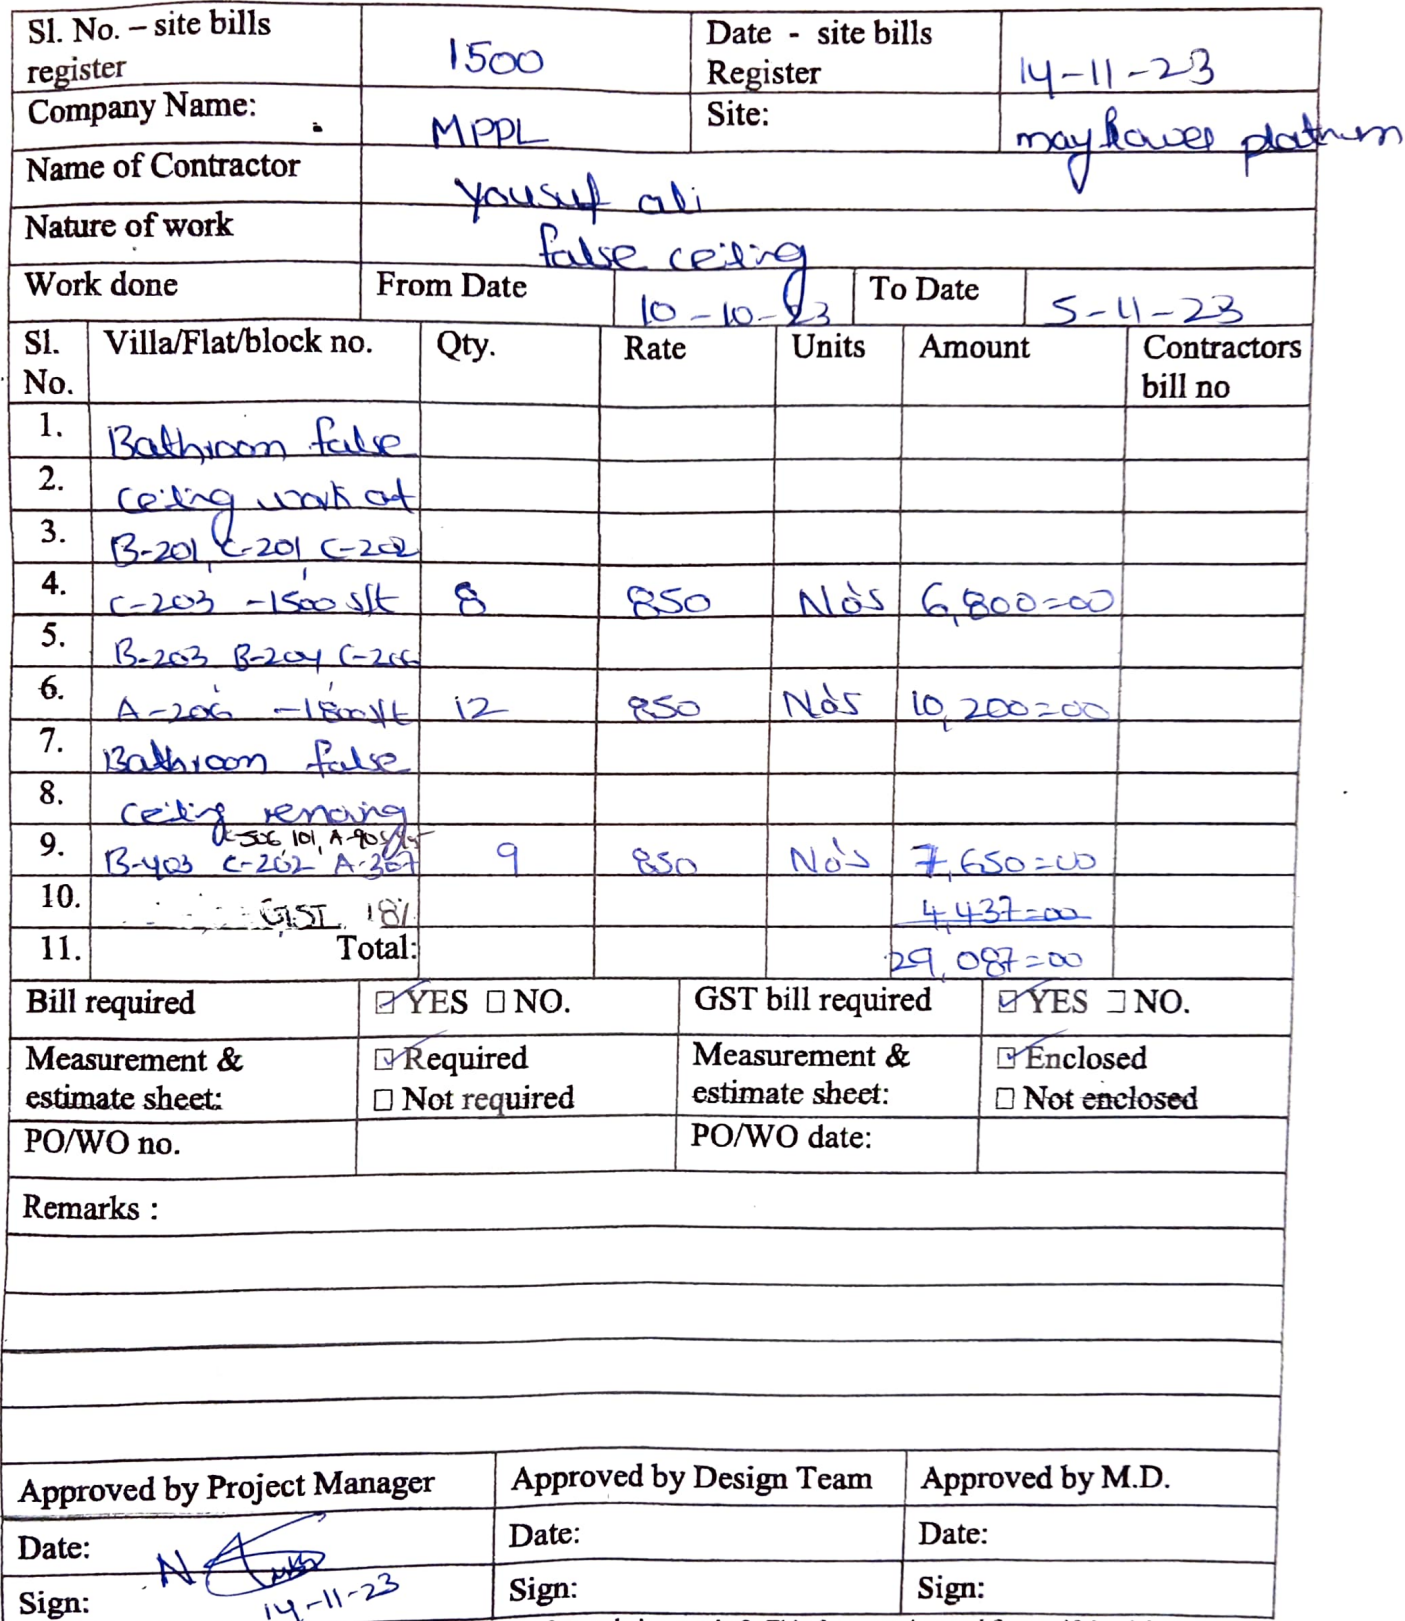 Sl. No. – site bills register 1500 Date - site bills Register 14-11-23
Company Name: MPPL Site: mayflower platinum
Name of Contractor yousuf ali
Nature of work false ceiling
Work done From Date 10-10-23 To Date 5-11-23
Sl. No. Villa/Flat/block no. Qty. Rate Units Amount Contractors bill no
1. Bathroom false
2. ceiling work at
3. B-201, C-201, C-202
4. C-203 -1500 sft 8 850 No's 6,800=00
5. B-203 B-204 C-206
6. A-206 -1800sft 12 850 No's 10,200=00
7. Bathroom false
8. ceiling removing
C-506, 101, A-905
9. B-403 C-202 A-307 9 850 No's 7,650=00
10. GST 18% 4,437=00
11. Total: 29,087=00
Bill required YES NO. GST bill required YES NO.
Measurement & estimate sheet: Required Not required Measurement & estimate sheet: Enclosed Not enclosed
PO/WO no. PO/WO date:
Remarks :
Approved by Project Manager Approved by Design Team Approved by M.D.
Date: Date: Date:
Sign: 14-11-23 Sign: Sign: